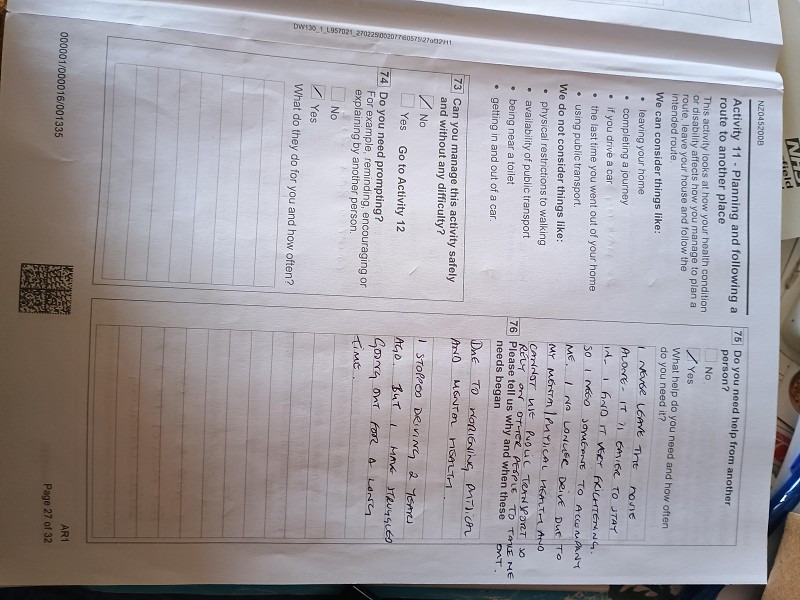 DW130_1_L957021_270225\002077\60575\27of32\H1
NZ045200B
Activity 11 - Planning and following a
route to another place
This activity looks at how your health condition
or disability affects how you manage to plan a
route, leave your house and follow the
intended route.
We can consider things like:
• leaving your home
• completing a journey
• if you drive a car
• the last time you went out of your home
• using public transport
We do not consider things like:
• physical restrictions to walking
• availability of public transport
• being near a toilet
• getting in and out of a car.
73 Can you manage this activity safely
and without any difficulty?
No
Yes Go to Activity 12
74 Do you need prompting?
For example, reminding, encouraging or
explaining by another person.
No
Yes
What do they do for you and how often?
75 Do you need help from another
person?
No
Yes
What help do you need and how often
do you need it?
I NEVER LEAVE THE HOUSE
ALONE - IT IS EASIER TO STAY
IN - I FIND IT VERY FRIGHTENING.
SO I NEED SOMEONE TO ACCOMPANY
ME. I NO LONGER DRIVE DUE TO
MY MENTAL/PHYSICAL HEALTH AND
CANNOT USE PUBLIC TRANSPORT SO
RELY ON OTHER PEOPLE TO TAKE ME
OUT.
76 Please tell us why and when these
needs began
DUE TO WORSENING PHYSICAL
AND MENTAL HEALTH.
I STOPPED DRIVING 2 YEARS
AGO. BUT I HAVE STRUGGLED
GOING OUT FOR A LONG
TIME.
000001/000016/001335
AR1
Page 27 of 32
field